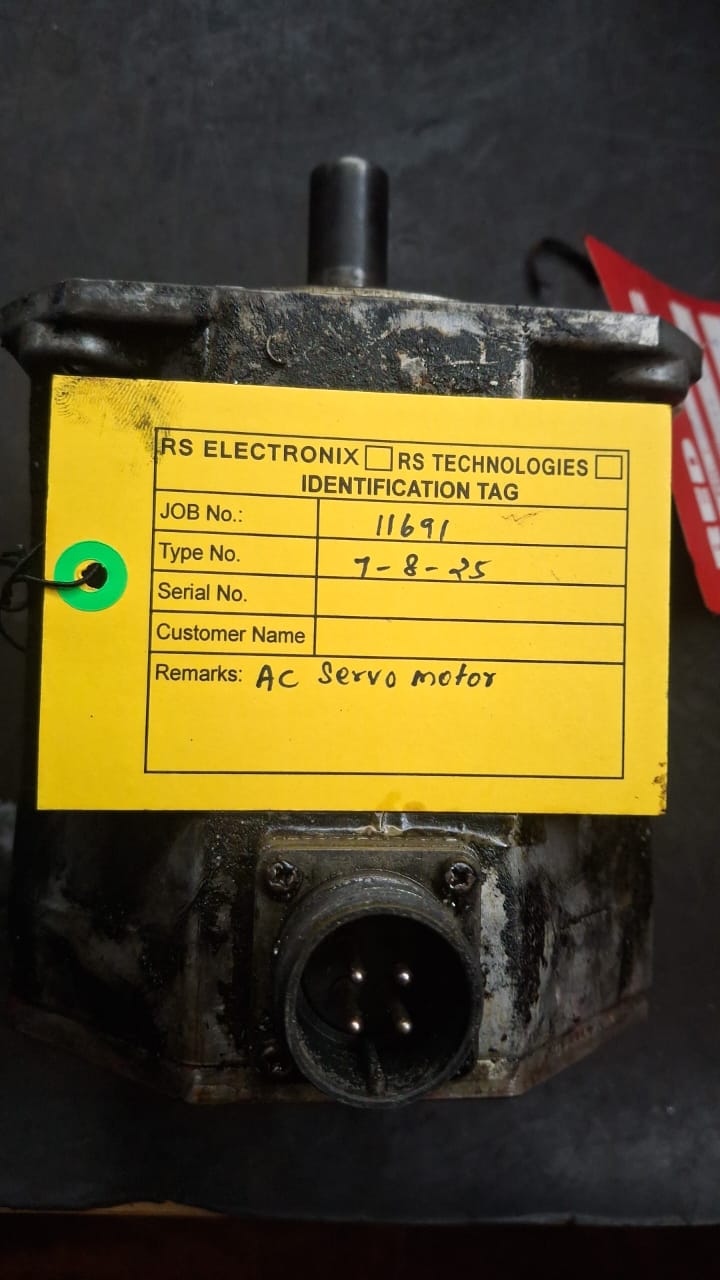 RS ELECTRONIX RS TECHNOLOGIES
IDENTIFICATION TAG
JOB No.: 11691
Type No. 7-8-25
Serial No.
Customer Name
Remarks: AC Servo motor